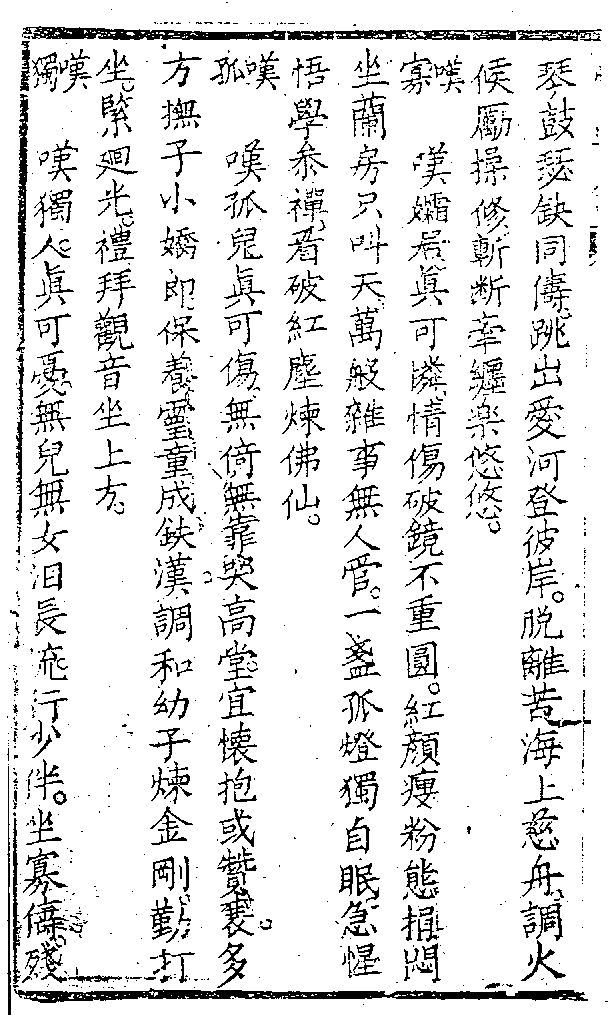 琴鼓瑟缺同儔。跳出愛河登彼岸。脫離苦海上慈舟。調火
候勵操修。斬断牽纏樂悠悠。
嘆寡　嘆孀居真可憐。情傷破鏡不重圓。紅顏瘦粉態損悶
坐蘭房只叫天。萬般雜事無人管。一盞孤燈獨自眠。急惺
悟學叅禪。看破紅塵煉佛仙。
嘆孤　嘆孤兒真可傷。無倚無靠哭高堂。宜懷抱或贊襄。多
方撫子小嬌郎。保養靈童成鉄漢。調和幼子煉金剛。勤打
坐。緊廻光。禮拜觀音坐上方。
嘆獨　嘆獨人。真可憂。無兒無女泪長流。行少伴。坐寡儔。殘